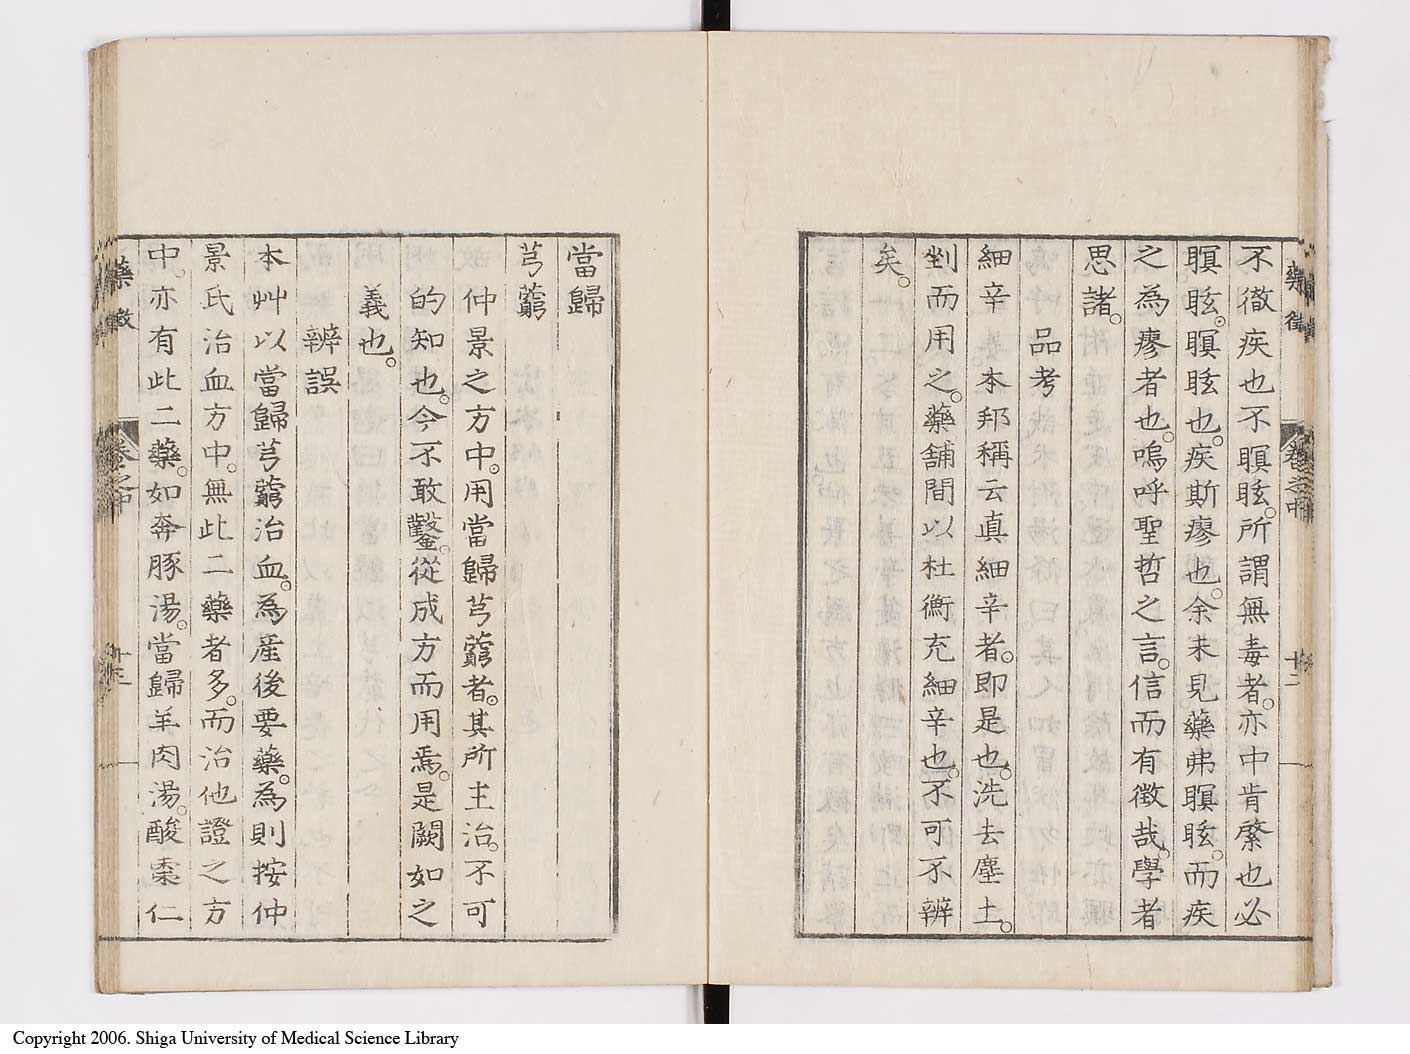 藥徵
卷之中
十二
不徹疾也不瞑眩。所謂無毒者。亦中肯綮也必
瞑眩。瞑眩也。疾斯瘳也。余未見藥弗瞑眩。而疾
之為瘳者也。嗚呼聖哲之言。信而有徵哉。學者
思諸。
品考
細辛 本邦稱云真細辛者。即是也。洗去塵土。
剉而用之。藥舖間以杜衡充細辛也。不可不辨
矣。
當歸
芎藭
仲景之方中。用當歸芎藭者。其所主治。不可
的知也。今不敢鑿。從成方而用焉。是闕如之
義也。
辨誤
本艸以當歸芎藭治血。為産後要藥。為則按仲
景氏治血方中。無此二藥者多。而治他證之方
中。亦有此二藥。如奔豚湯。當歸羊肉湯。酸棗仁
藥徵
卷之中
Copyright 2006. Shiga University of Medical Science Library